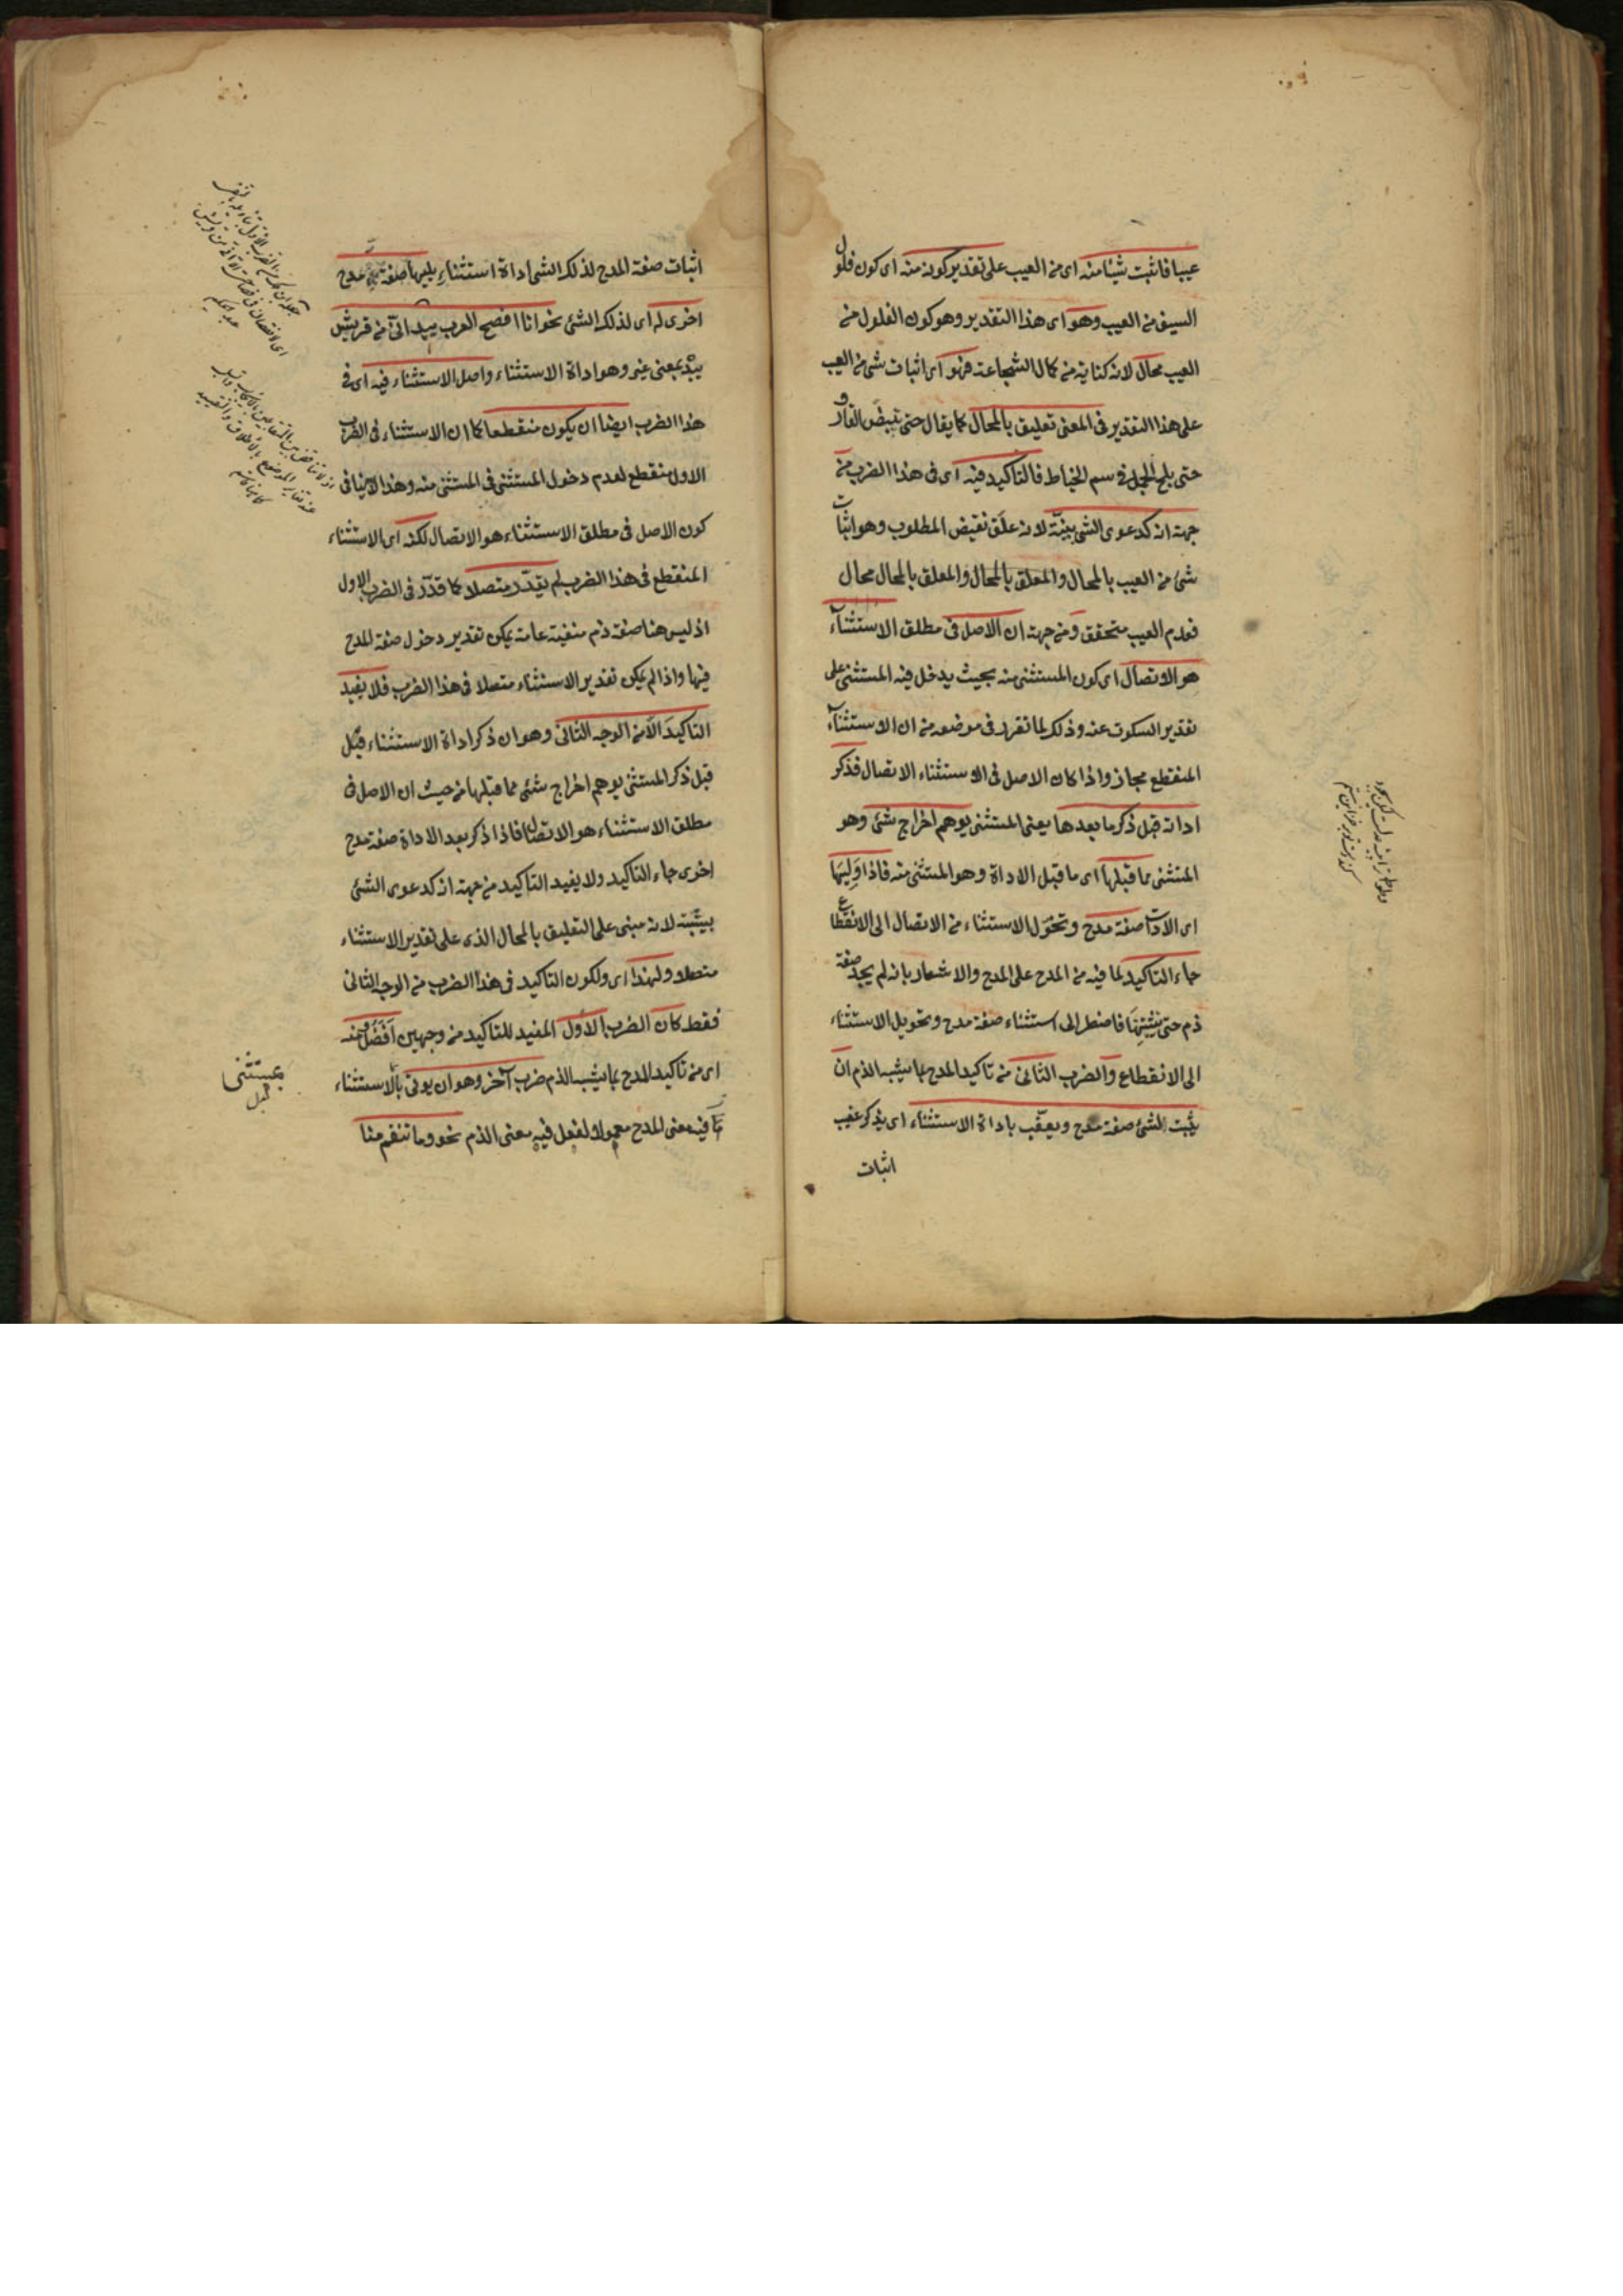 عيبا فاثبت شيئا منه اى من العيب على تقدير كونه منه اى كون فلول
السيف من العيب وهو اى هذا التقدير وهو كون الفلول من
العيب محال لانه كناية من كمال الشجاعة فهو اى اثبات شئ من العيب
على هذا التقدير فى المعنى تعليق بالمحال كما يقال حتى تبيض القار و
حتى يلج الجمل فى سم الخياط فالتاكيد فيه اى فى هذا الضرب من
جهة انه كدعوى الشئ ببينة لانه علق نقيض المطلوب وهو اثبات
شئ من العيب بالمحال والمعلق بالمحال والمعلق بالمحال محال
فعدم العيب متحقق ومن جهة ان الاصل فى مطلق الاستثناء
هو الاتصال اى كون المستثنى منه بحيث يدخل فيه المستثنى على
تقدير السكوت عنه وذلك لما تقرر فى موضعه من ان الاستثناء
المنقطع مجاز واذا كان الاصل فى الاستثناء الاتصال فذكر
اداته قبل ذكر ما بعدها يعنى المستثنى يوهم اخراج شئ وهو
المتثنى مما قبلها اى ما قبل الاداة وهو المستثنى منه فاذا وليها
اى الادات صفة مدح وتحول الاستثناء من الاتصال الى الانقطاع
جاء التاكيد لما فيه من المدح على المدح والاشعار بانه لم يجد صفة
ذم حتى يثبتها فاضطر الى استثناء صفة مدح وتحويل الاستثناء
الى الانقطاع والضرب الثانى من تاكيد المدح بما يشبه الذم ان
يثبت لشئ صفة مدح ويعقب باداة الاستثناء اى يذكر عقيب
اثبات
اثبات صفة المدح لذلك الشئ اداة استثناء يليها صفة مدح
اخرى له اى لذلك الشئ نحو انا افصح العرب بيد انى من قريش
بيد بمعنى غير وهو اداة الاستثناء واصل الاستثناء فيه اى فى
هذا الضرب ايضا ان يكون منقطعا كما ان الاستثناء فى الضرب
الاول منقطع لعدم دخول المستثنى فى المستثنى منه وهذا لا ينافى
كون الاصل فى مطلق الاستثناء هو الاتصال لكنه اى الاستثناء
المنقطع فى هذا الضرب لم يقدر متصلا كما قدر فى الضرب الاول
اذ ليس هنا صفة ذم منفية عامة يمكن تقدير دخول صفة المدح
فيها واذا لم يمكن تقدير الاستثناء متصلا فى هذا الضرب فلا يفيد
التاكيد الا من الوجه الثانى وهو ان ذكر اداة الاستثناء قبل
قبل ذكر المستثنى يوهم اخراج شئ مما قبلها من حيث ان الاصل فى
مطلق الاستثناء هو الاتصال فاذا ذكر بعد الاداة صفة مدح
اخرى جاء التاكيد ولا يفيد التاكيد من جهة انه كدعوى الشئ
ببينة لانه مبنى على التعليق بالمحال الذى على تقدير الاستثناء
متصلا ولهذا اى ولكون التاكيد فى هذا الضرب من الوجه الثانى
فقط كان الضرب الاول المفيد للتاكيد من وجهين افضل ومنه
اى من تاكيد المدح بما يشبه الذم ضرب آخر وهو ان يوتى بالاستثناء
فيه معنى المدح معمولا لفعل فيه معنى الذم نحو وما تنقم منا